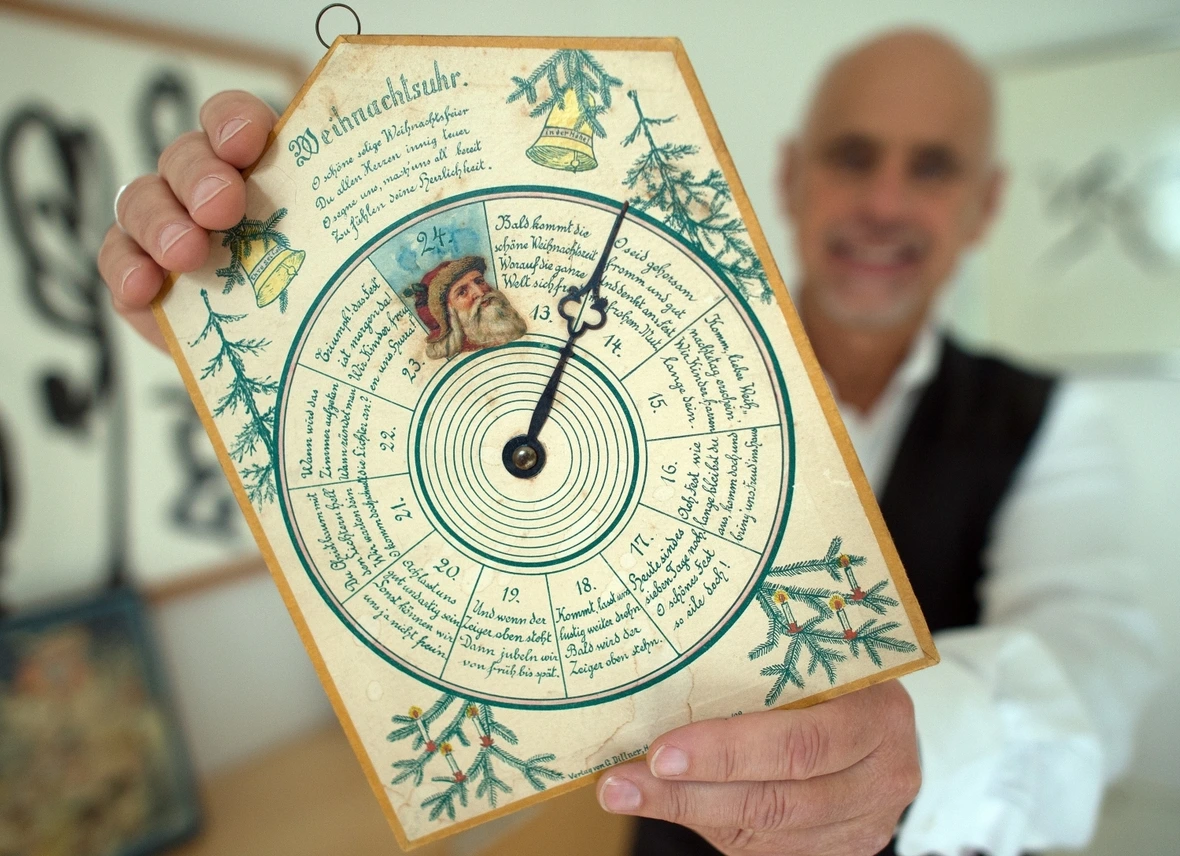 Weihnachtsuhr.
O schöne selige Weihnachtsfeier
Du allen Herzen innig teuer
O segne uns, mach uns all bereit
Zu fühlen deine Herrlichkeit.
in der Höhe!
Ehre sei Gott
24.
Bald kommt die
schöne Weihnachtszeit
Worauf die ganze
Welt sich
13.
O seid gehorsam
fromm und gut
Und denkt ans Fest
frohen Mut
14.
Komm, lieber Weih-
nachtstag erschein,
Wir Kinder harren
lange dein.
15.
16.
Ach Fest wie
lange bleibst du
aus, komm doch und
bring uns Freud ins Haus
17.
Heute sind es
sieben Tage noch
O schönes Fest
so eile doch!
18.
Kommt, lasst uns
lustig weiter drehn
Bald wird der
Zeiger oben stehn.
19.
Und wenn der
Zeiger oben steht
Dann jubeln wir
von früh bis spät.
20.
Ach lasst uns
gut und artig sein
Sonst können wir
uns ja nicht freun
21.
Du Christbaum mit
den Lichtern hell
Wir warten dein
O komm doch schnell
22.
Wann wird das
Zimmer aufgetan
Wann zündet man
die Lichter an?
23.
Triumph! das Fest
ist morgen da
Wir Kinder
Hurra!
Verlag von G. Dittner,